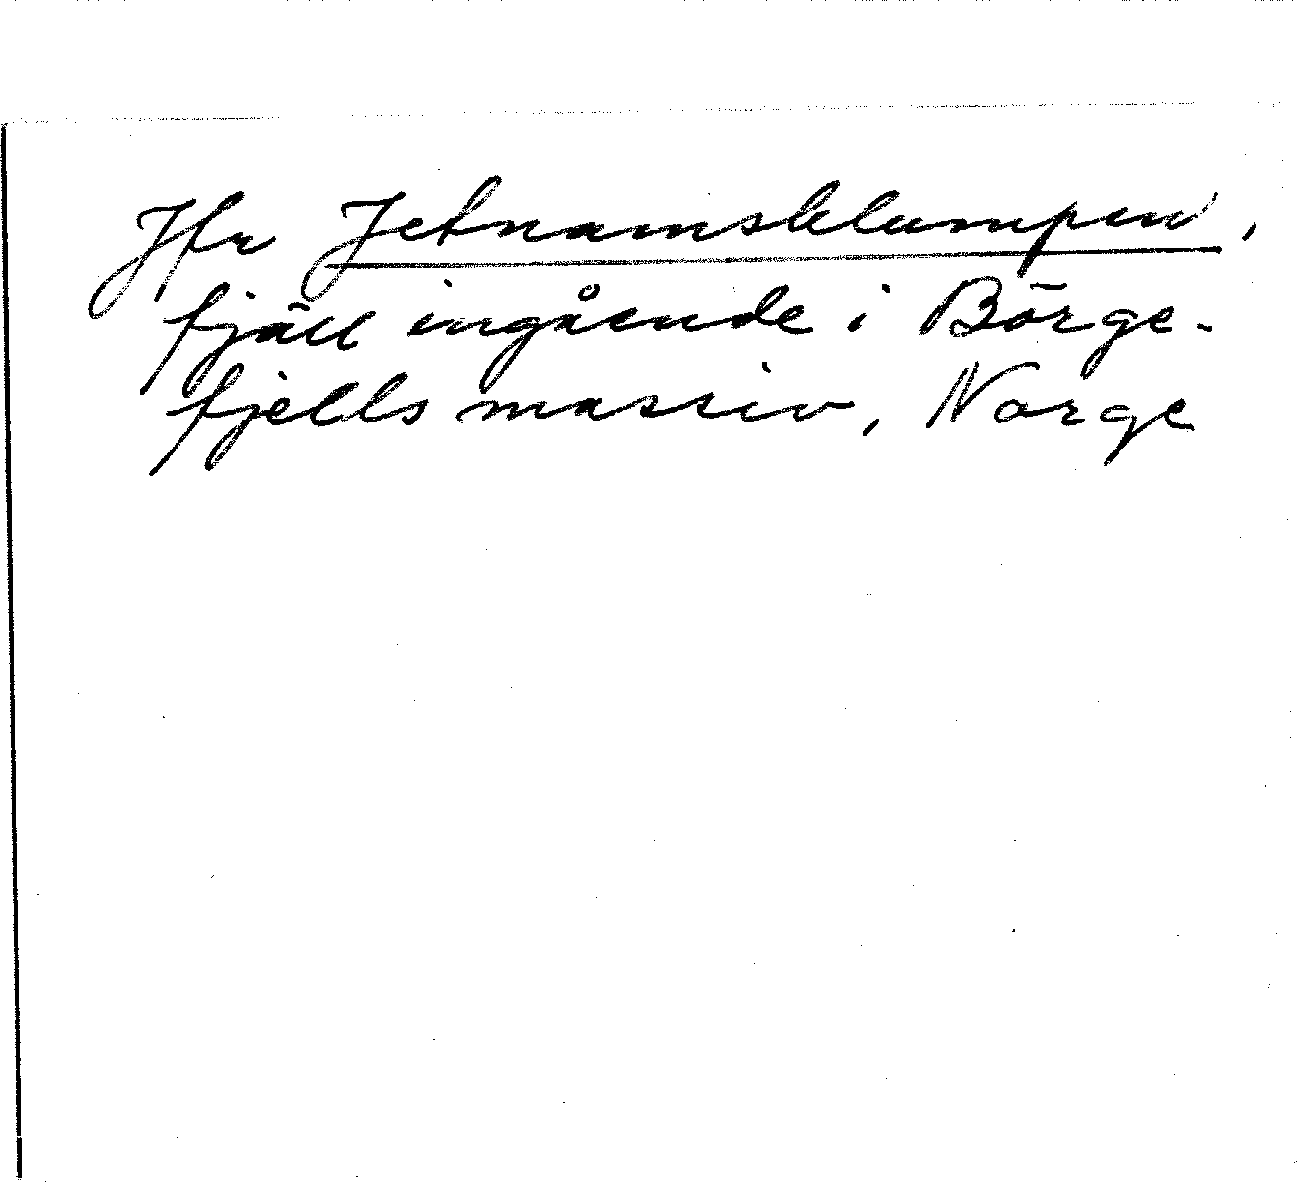 Jfr Jetnamsklumpen,
fjäll ingående i Börge-
fjells massiv, Norge